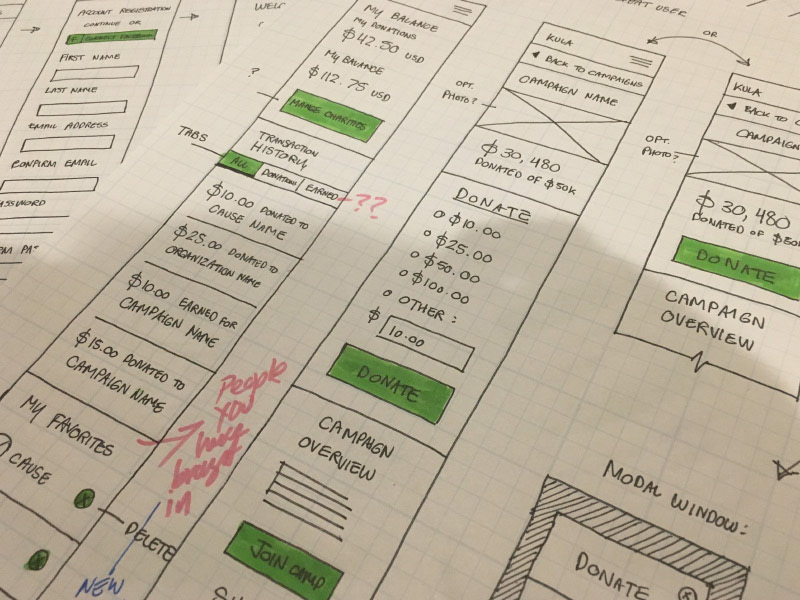 ACCOUNT REGISTRATION
CONTINUE OR
CONNECT FACEBOOK
FIRST NAME
LAST NAME
EMAIL ADDRESS
CONFIRM EMAIL
ASSWORD
?
TABS
MY BALANCE
MY DONATIONS
$42.50 USD
MY BALANCE
$112.75 USD
MANAGE CHARITIES
TRANSACTION
HISTORY
ALL DONATIONS EARNED
??
$10.00 DONATED TO
CAUSE NAME
$25.00 DONATED TO
ORGANIZATION NAME
$10.00 EARNED FOR
CAMPAIGN NAME
$15.00 DONATED TO
CAMPAIGN NAME
MY FAVORITES
CAUSE
DELETE
NEW
People
you
have
in
OPT.
PHOTO?
KULA
BACK TO CAMPAIGNS
CAMPAIGN NAME
$30,480
DONATED OF $50K
DONATE
$10.00
$25.00
$50.00
$100.00
OTHER:
$ 10.00
DONATE
CAMPAIGN
OVERVIEW
JOIN CAMP
USER
OR
OPT.
PHOTO?
KULA
BACK TO C
CAMPAIGN
$30,480
DONATED OF $50K
DONATE
CAMPAIGN
OVERVIEW
MODAL WINDOW:
DONATE